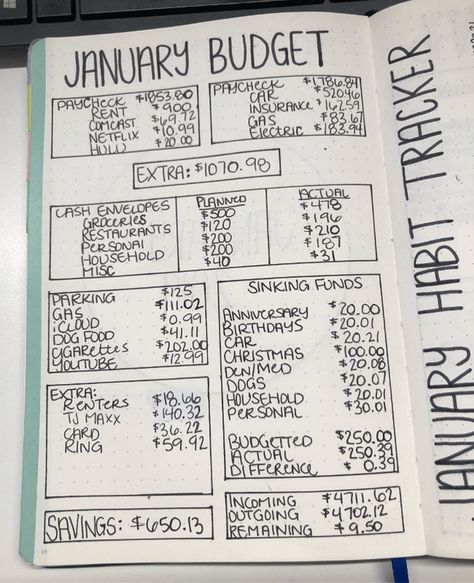 JANUARY BUDGET
PAYCHECK $1853.80
RENT $900
COMCAST $69.72
NETFLIX $10.99
HULU $20.00
PAYCHECK $1786.84
CAR $520.46
INSURANCE $162.59
GAS $83.67
ELECTRIC $183.94
EXTRA: $1070.98
PLANNED ACTUAL
CASH ENVELOPES
GROCERIES $500 $478
RESTAURANTS $120 $196
PERSONAL $200 $210
HOUSEHOLD $200 $187
MISC $40 $31
PARKING $125
GAS $111.02
iCLOUD $0.99
DOG FOOD $41.11
CIGARETTES $202.00
YOUTUBE $12.99
SINKING FUNDS
ANNIVERSARY $20.00
BIRTHDAYS $20.01
CAR $20.21
CHRISTMAS $100.00
DEN/MED $20.08
DOGS $20.07
HOUSEHOLD $20.01
PERSONAL $30.01
BUDGETTED $250.00
ACTUAL $250.39
DIFFERENCE $0.39
EXTRA:
RENTERS $18.66
TJ MAXX $140.32
CARD $36.22
RING $59.92
SAVINGS: $650.13
INCOMING $4711.62
OUTGOING $4702.12
REMAINING $9.50
JANUARY HABIT TRACKER